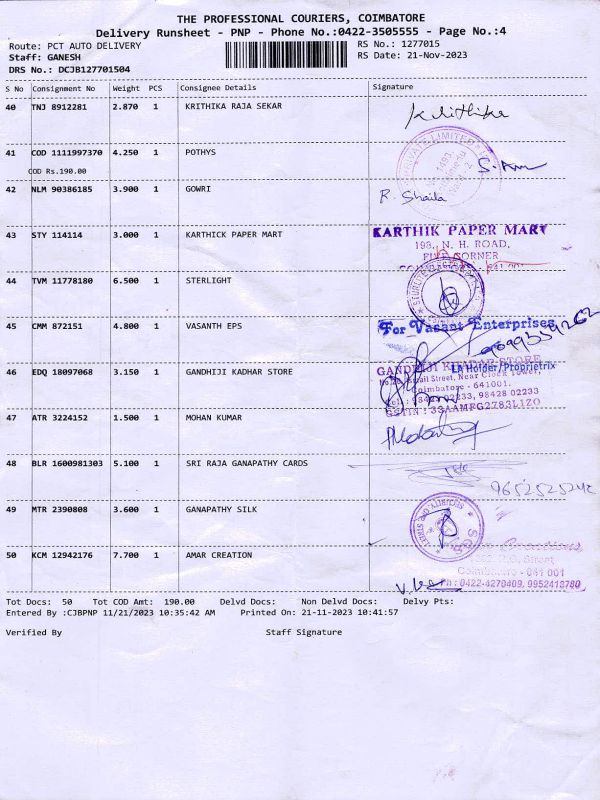 THE PROFESSIONAL COURIERS, COIMBATORE
Delivery Runsheet - PNP - Phone No.:0422-3505555 - Page No.:4
Route: PCT AUTO DELIVERY
RS No.: 1277015
Staff: GANESH
RS Date: 21-Nov-2023
DRS No.: DCJB127701504
S No Consignment No Weight PCS Consignee Details Signature
40 TNJ 8912281 2.870 1 KRITHIKA RAJA SEKAR Krithika
41 COD 1111997370 4.250 1 POTHYS
COD Rs.190.00
42 NLM 90386185 3.900 1 GOWRI R. Shaila
43 STY 114114 3.000 1 KARTHICK PAPER MART KARTHIK PAPER MART
198, N. H. ROAD,
FIVE CORNER
44 TVM 11778180 6.500 1 STERLIGHT
45 CMM 872151 4.800 1 VASANTH EPS For Vasant Enterprises
46 EDQ 18097068 3.150 1 GANDHIJI KADHAR STORE GANDHIJI KHADAR STORE
LA Holder/Proprietrix
Street, Near Clock Tower,
Coimbatore - 641001.
98428 02233
GSTIN : 33AAMFG2783L1ZO
47 ATR 3224152 1.500 1 MOHAN KUMAR
48 BLR 1600981303 5.100 1 SRI RAJA GANAPATHY CARDS
49 MTR 2390808 3.600 1 GANAPATHY SILK
50 KCM 12942176 7.700 1 AMAR CREATION
Street
Coimbatore - 641 001
Ph : 0422-4270409, 9952418780
Tot Docs: 50 Tot COD Amt: 190.00 Delvd Docs: Non Delvd Docs: Delvy Pts:
Entered By :CJBPNP 11/21/2023 10:35:42 AM Printed On: 21-11-2023 10:41:57
Verified By Staff Signature